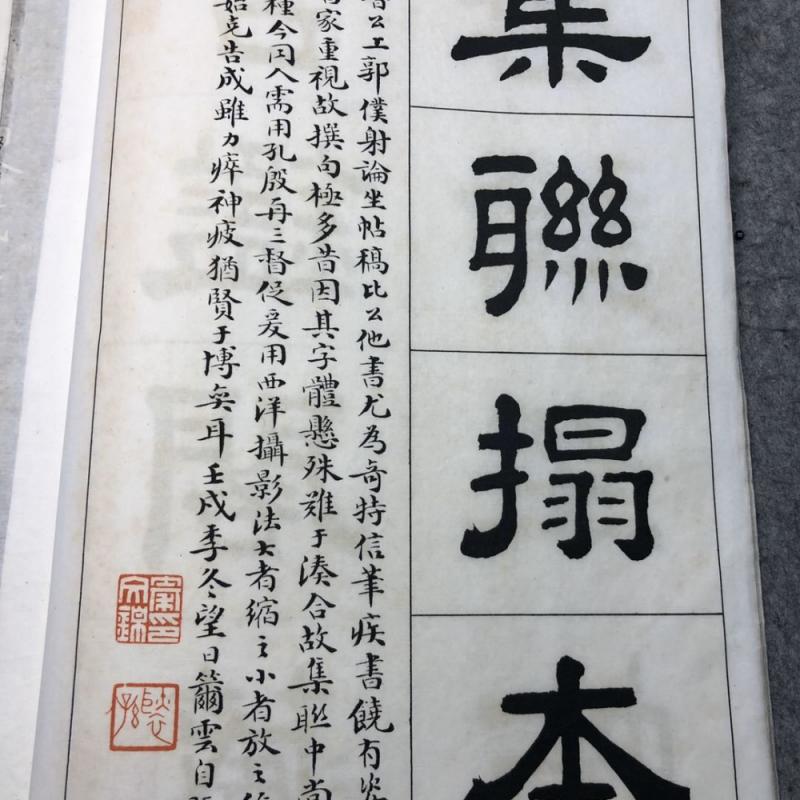 集聯搨本
公上郭僕射論坐帖稿比公他書尤為奇特信筆疾書饒有姿
家重視故撰句極多昔因其字體懸殊難于湊合故集聯中尚
種今同人需用孔殷再三督促爰用西洋攝影法大者縮之小者放之
始克告成雖力瘁神疲猶賢于博奕耳壬戌季冬望日籋雲自